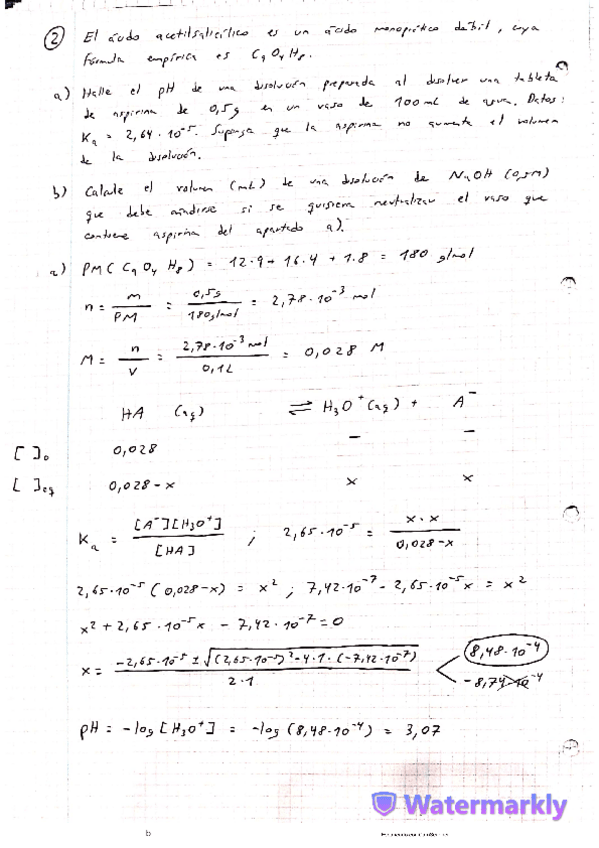 ② El ácido acetilsalicílico es un ácido monoprótico débil, cuya
fórmula empírica es C₉O₄H₈.
a) Halle el pH de una disolución preparada al disolver una tableta
de aspirina de 0,5g en un vaso de 100 mL de agua. Datos:
Ka = 2,64·10⁻⁵. Suponga que la aspirina no aumenta el volumen
de la disolución.
b) Calcule el volumen (mL) de una disolución de NaOH (0,5M)
que debe añadirse si se quisiera neutralizar el vaso que
contiene aspirina del apartado a).
a) PM(C₉O₄H₈) = 12·9 + 16·4 + 1·8 = 180 g/mol
n = m/PM = 0,5g/180g/mol = 2,78·10⁻³ mol
M = n/V = 2,78·10⁻³ mol/0,1L = 0,028 M
HA (aq) ⇌ H₃O⁺(aq) + A⁻
[ ]₀ 0,028 – –
[ ]eq 0,028-x x x
Ka = [A⁻][H₃O⁺]/[HA] ; 2,65·10⁻⁵ = x·x/0,028-x
2,65·10⁻⁵(0,028-x) = x² ; 7,42·10⁻⁷ - 2,65·10⁻⁵x = x²
x² + 2,65·10⁻⁵x - 7,42·10⁻⁷ = 0
x = -2,65·10⁻⁵ ± √(2,65·10⁻⁵)² - 4·1·(-7,42·10⁻⁷)/2·1 8,48·10⁻⁴
-8,74·10⁻⁴
pH = -log[H₃O⁺] = -log(8,48·10⁻⁴) = 3,07
Watermarkly